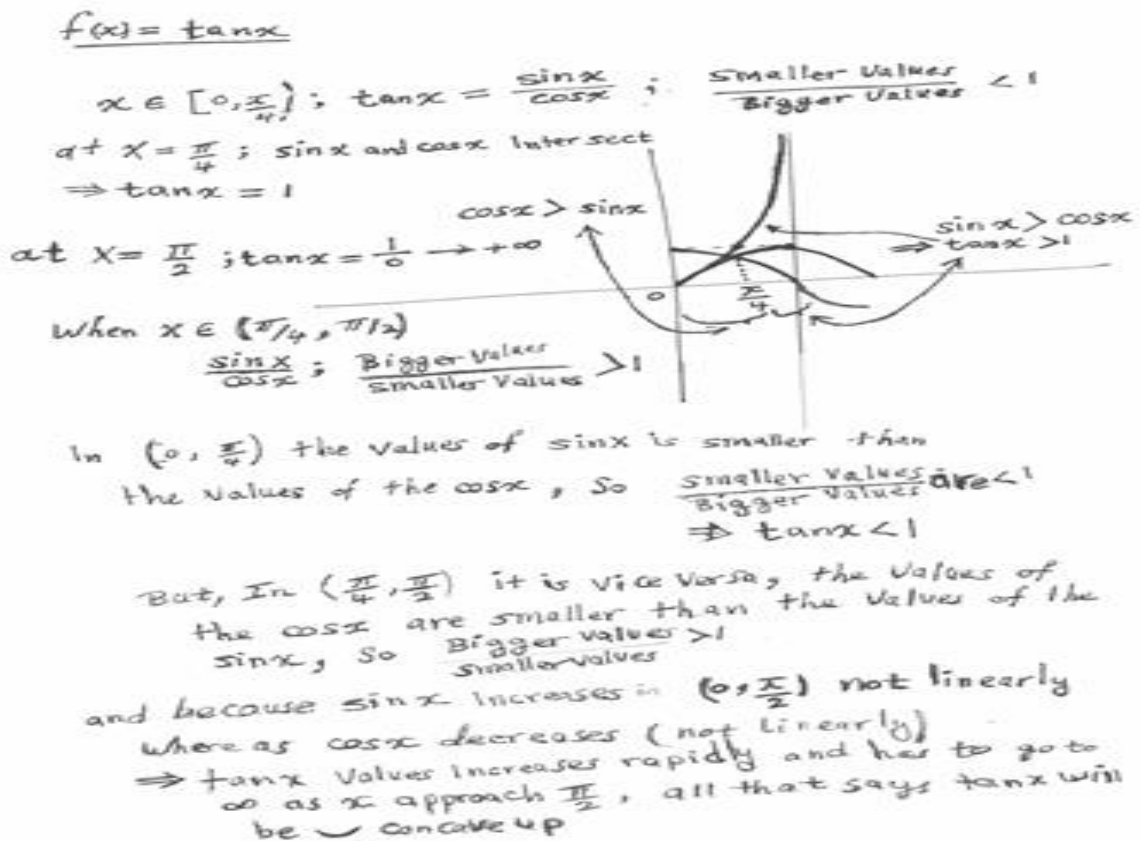 f(x) = tanx
x ∈ [0, π/4) ; tanx = sinx/cosx ; Smaller Values/Bigger Values < 1
at x = π/4 ; sinx and cosx Intersect
⇒ tanx = 1
cosx > sinx
sinx > cosx
⇒ tanx > 1
at x = π/2 ; tanx = 1/0 → +∞
0
π/4
When x ∈ (π/4, π/2)
sinx/cosx ; Bigger Values/Smaller Values > 1
In (0, π/4) the values of sinx is smaller than
the values of the cosx, So Smaller Values/Bigger Values are < 1
⇒ tanx < 1
But, In (π/4, π/2) it is vice versa, the values of
the cosx are smaller than the values of the
sinx, So Bigger values/smaller values > 1
and because sinx increases in (0, π/2) not linearly
where as cosx decreases (not linearly)
⇒ tanx values increases rapidly and has to go to
∞ as x approach π/2, all that says tanx will
be ⌣ concave up